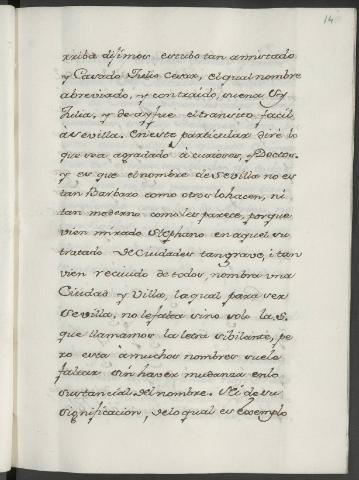 14.
rriba dijimos estubo tan amistado
y Casado Julio Cesar, el qual nombre
abreviado, y contraido, suena Sy
Julia, y de ay fue el transito facil
à Sevilla. En este particular diré lo
que sea agradado à curiosos, y Doctos.
y es que el nombre de Sevilla no es
tan Barbaro como otros lo hacen, ni
tan moderno como les parece, porque
vien mirado Stephano en aquel su
tratado de Ciudades tan grave, i tan
vien reciuido de todos, nombra una
Ciudad y Villa, la qual para ser
Sevilla, no le falta sino solo la S.
que llamamos la letra sibilante, pe
ro esta à muchos nombres suele
faltar sin haver mudanza en lo
sustancial del nombre. Si de su
significacion, de lo qual es exemplo